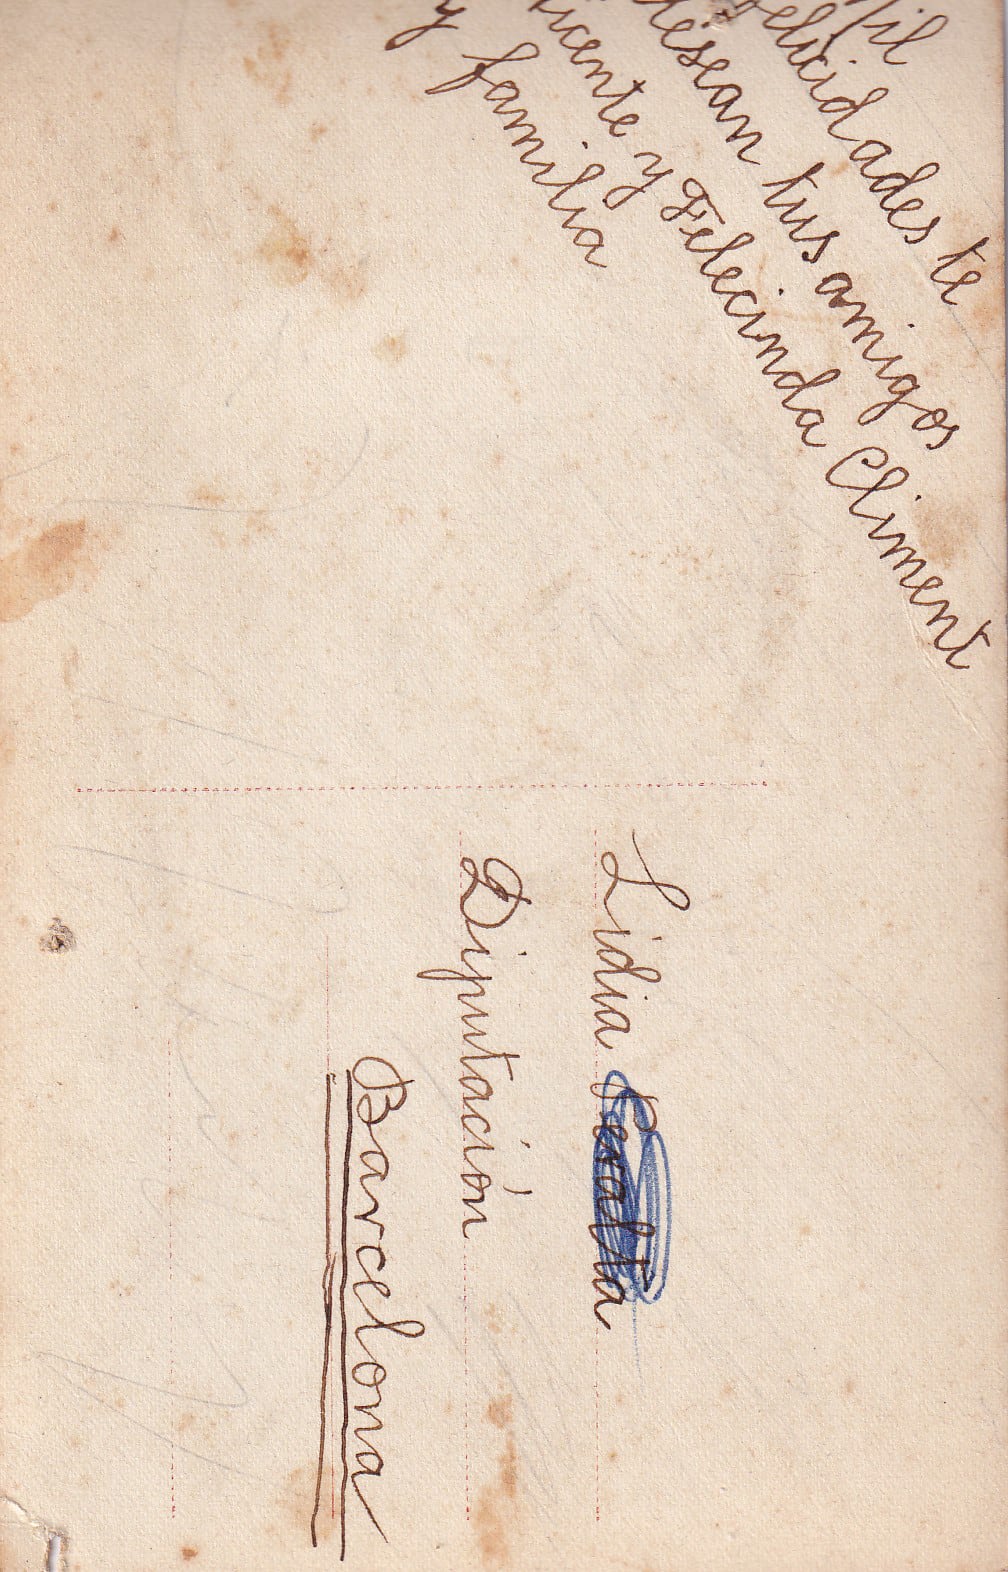 Mil
felicidades te
desean tus amigos
Vicente y Felecinda Climent
y familia
Lidia Peralta
Diputación
Barcelona